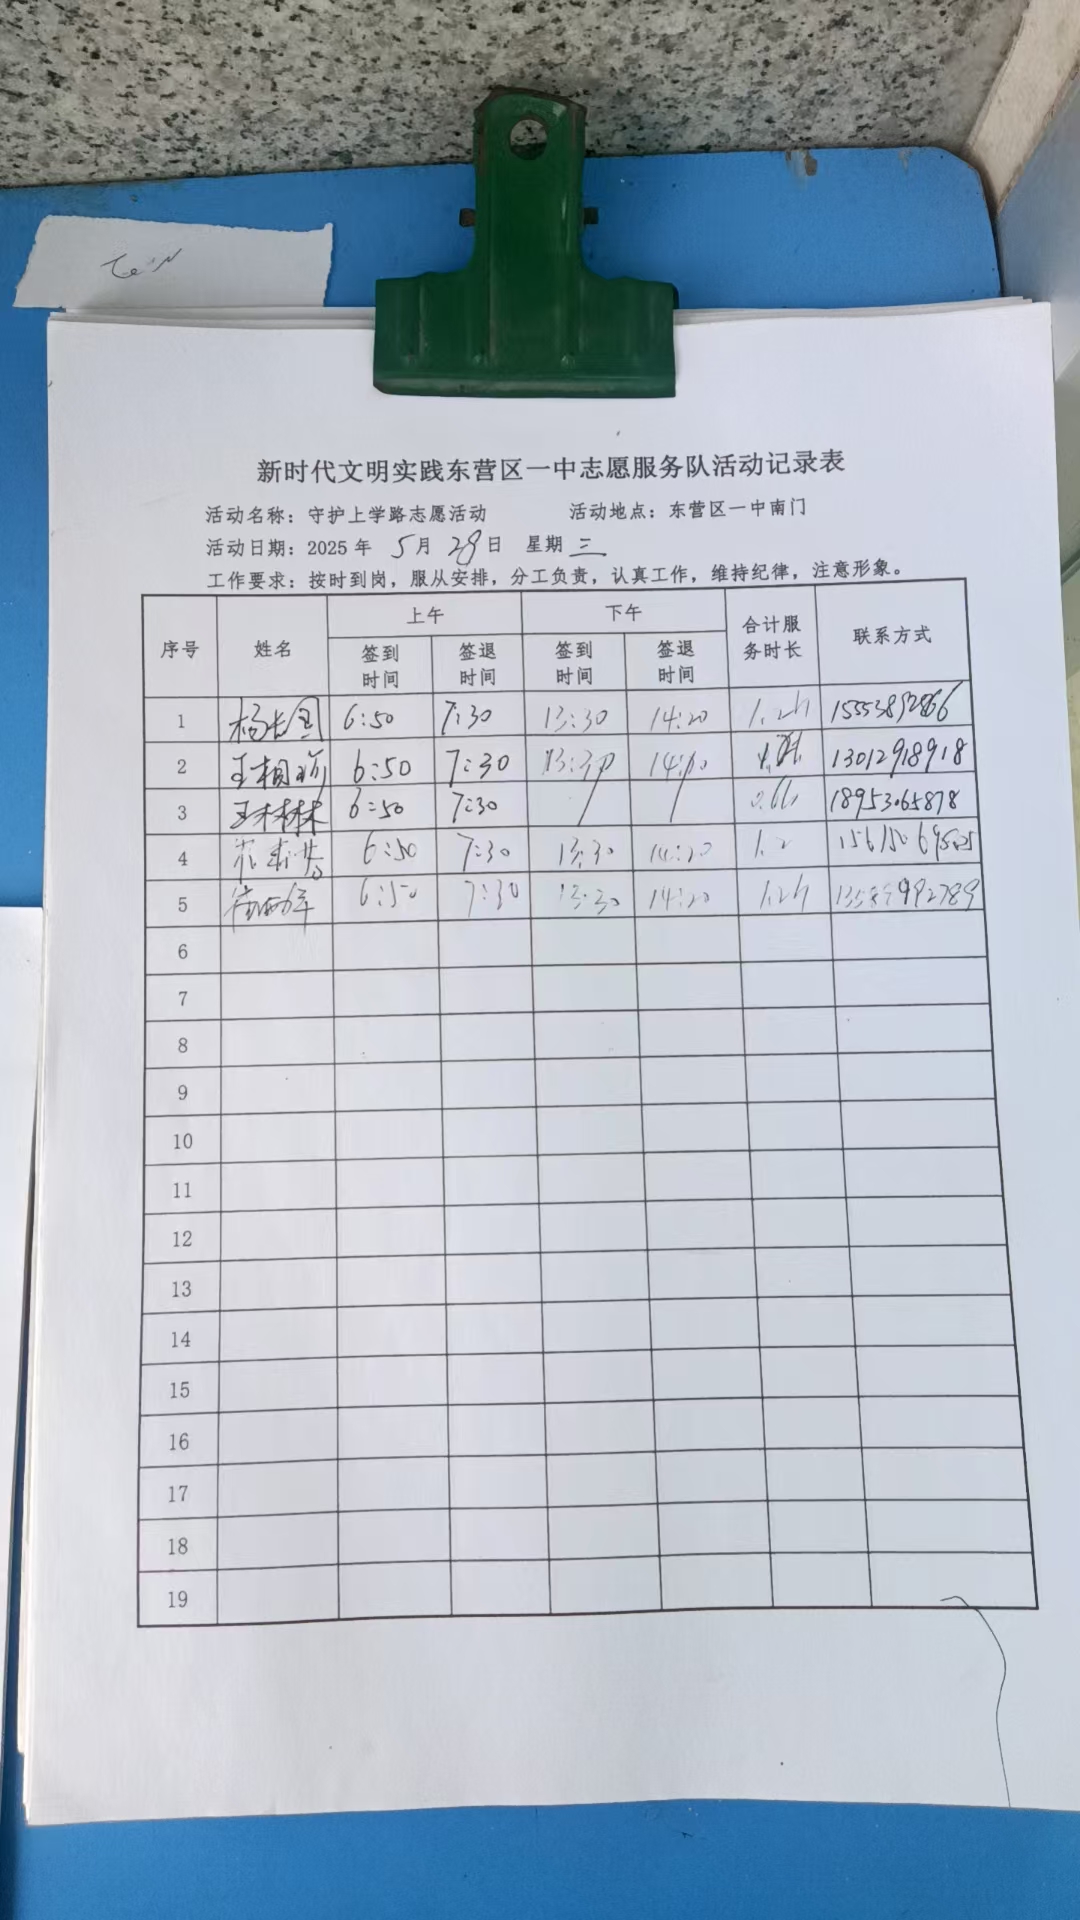 新时代文明实践东营区一中志愿服务队活动记录表
活动名称：守护上学路志愿活动 活动地点：东营区一中南门
活动日期：2025年 5月 28日 星期 三
工作要求：按时到岗，服从安排，分工负责，认真工作，维持纪律，注意形象。
序号 姓名 上午 下午 合计服务时长 联系方式
签到时间 签退时间 签到时间 签退时间
1 6:50 7:30 13:30 14:20 1.2h 15553892866
2 6:50 7:30 13:30 13012918918
3 王林林 6:50 7:30 / / 18953065878
4 6:50 7:30 13:30 14:20 1.2
5 6:50 7:30 13:30 14:20 1.2h
6
7
8
9
10
11
12
13
14
15
16
17
18
19